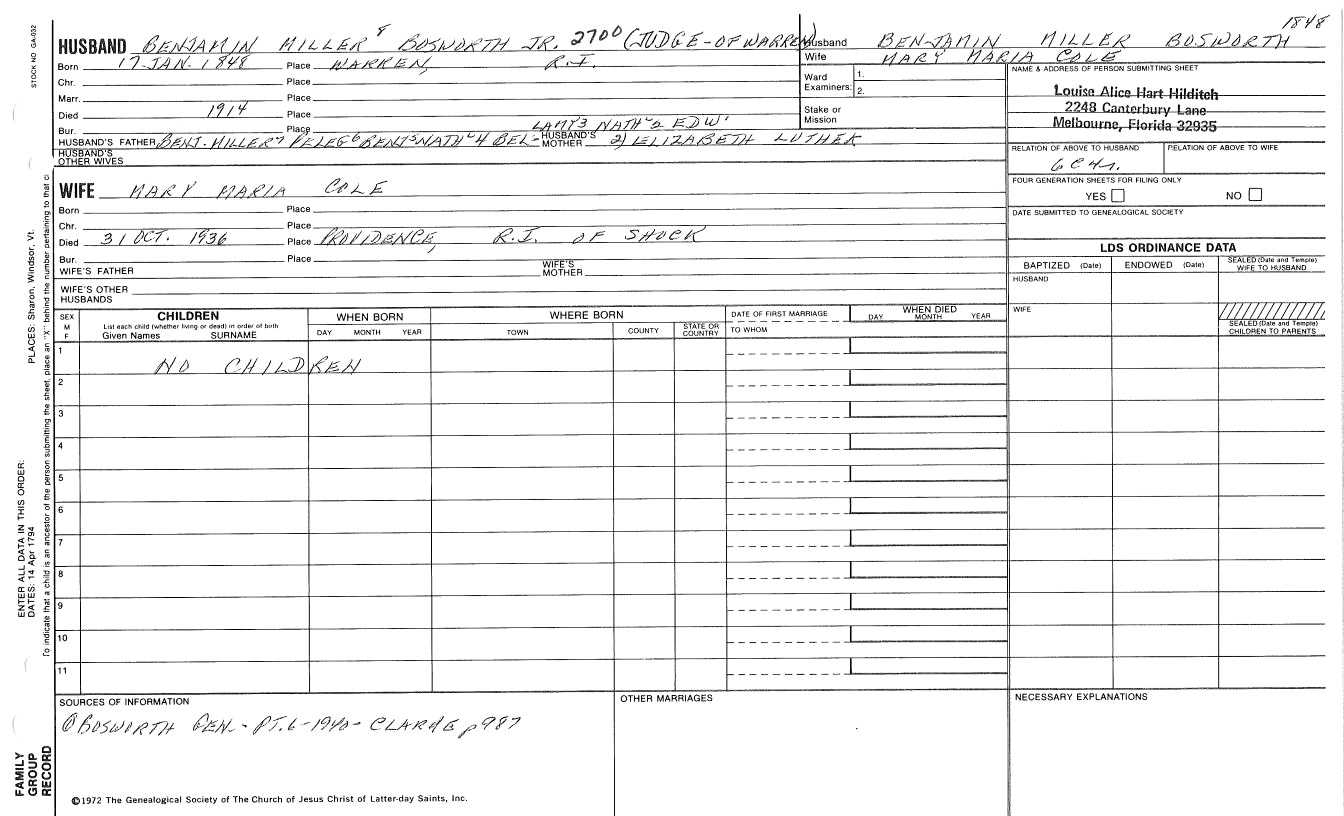 1848
STOCK NO. GA-032
HUSBAND BENJAMIN MILLER⁸ BOSWORTH JR. 2700 (JUDGE-OF WARREN)
Born 17-JAN-1848 Place WARREN, R.I.
Chr. Place
Marr. Place
Died 1914 Place
Bur. Place
LAMY³ NATH'L² EDW¹
HUSBAND'S FATHER BENJ. MILLER⁷ PELEG⁶ BENJ⁵ NATH'L⁴ BEL- HUSBAND'S MOTHER 2) ELIZABETH LUTHER
HUSBAND'S OTHER WIVES
Husband BENJAMIN MILLER BOSWORTH
Wife MARY MARIA COLE
Ward 1.
Examiners: 2.
Stake or
Mission
NAME & ADDRESS OF PERSON SUBMITTING SHEET
Louise Alice Hart Hilditch
2248 Canterbury Lane
Melbourne, Florida 32935
RELATION OF ABOVE TO HUSBAND RELATION OF ABOVE TO WIFE
6C4r.
FOUR GENERATION SHEETS FOR FILING ONLY
YES NO
DATE SUBMITTED TO GENEALOGICAL SOCIETY
WIFE MARY MARIA COLE
Born Place
Chr. Place
Died 31 OCT. 1936 Place PROVIDENCE, R.I. OF SHOCK
Bur. Place
WIFE'S FATHER WIFE'S MOTHER
WIFE'S OTHER HUSBANDS
LDS ORDINANCE DATA
BAPTIZED (Date) ENDOWED (Date) SEALED (Date and Temple) WIFE TO HUSBAND
HUSBAND
WIFE
SEALED (Date and Temple)
CHILDREN TO PARENTS
SEX
M
F
CHILDREN
List each child (whether living or dead) in order of birth
Given Names SURNAME
WHEN BORN
DAY MONTH YEAR
WHERE BORN
TOWN COUNTY STATE OR COUNTRY
DATE OF FIRST MARRIAGE
TO WHOM
WHEN DIED
DAY MONTH YEAR
1
NO CHILDREN
2
3
4
5
6
7
8
9
10
11
SOURCES OF INFORMATION
① BOSWORTH GEN. - PT.6-1940- CLARKE p987
OTHER MARRIAGES
NECESSARY EXPLANATIONS
©1972 The Genealogical Society of The Church of Jesus Christ of Latter-day Saints, Inc.
FAMILY
GROUP
RECORD
ENTER ALL DATA IN THIS ORDER:
DATES: 14 Apr 1794
PLACES: Sharon, Windsor, Vt.
To indicate that a child is an ancestor of the person submitting the sheet, place an "X" behind the number pertaining to that